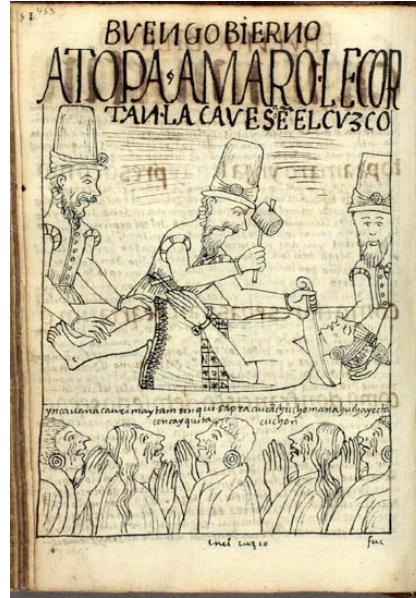 453
BVEN GOBIERNO
ATOPA AMARO LE COR
TAN LA CAVESA ĒEL CVZCO
ynca uana cauri maytam rinqui sapra aucanchiccho mana huchayocta
concayquita cuchon
en el cuzco
fue